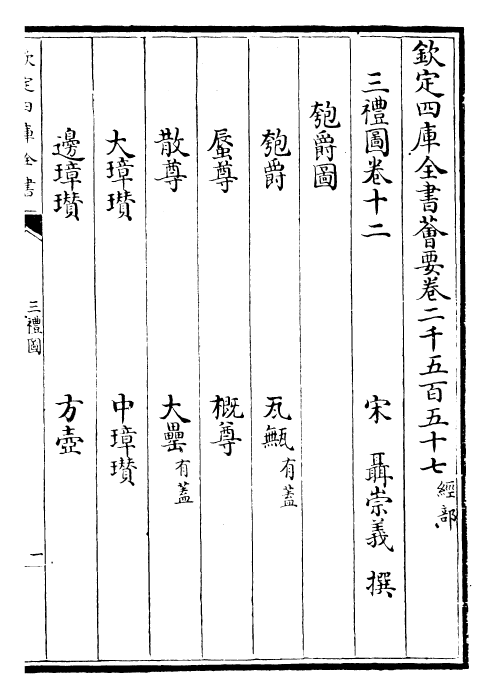 欽定四庫全書薈要卷二千五百五十七經部
三禮圖卷十二 宋 聶崇義 撰
匏爵圖
匏爵 瓦甒有蓋
蜃尊 概尊
散尊 大罍有蓋
大璋瓚 中璋瓚
邊璋瓚 方壺
欽定四庫全書 三禮圖 一